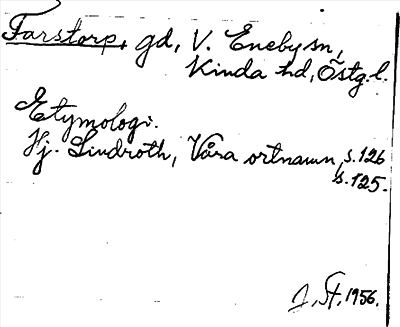 Farstorp, gd, V. Enebysn,
Kinda hd, Östg.l.
Etymologi.
Hj. Lindroth, Våra ortnamn, s. 126
s. 125.
J. St. 1956.